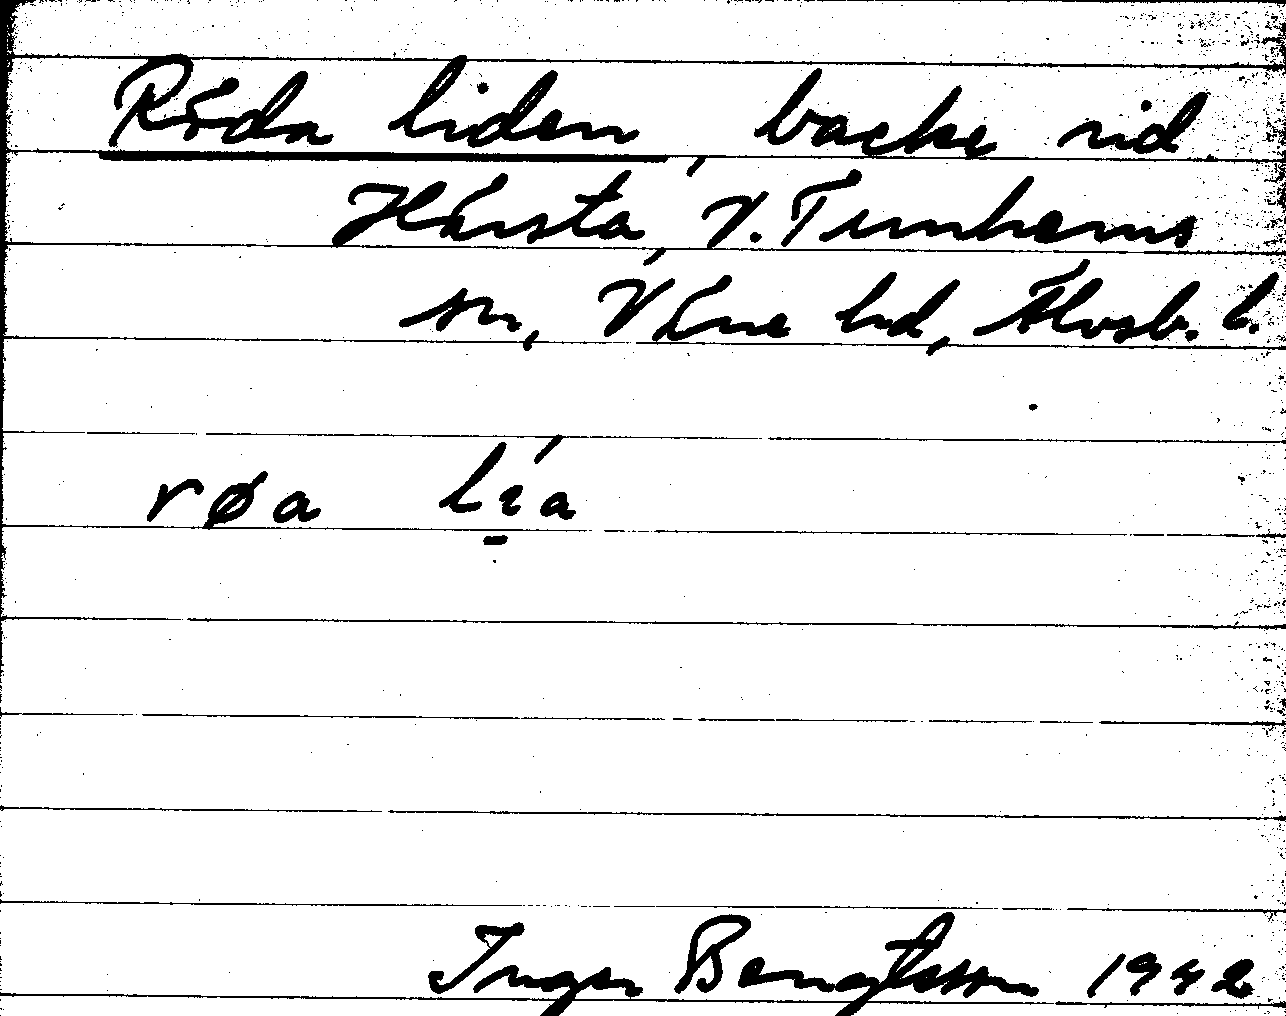 Röda liden, backe vid
Härsta, V. Tunhems
sn, Väne hd, Älvsb. l.
røa lı̱́a
Inger Bengtsson 1942